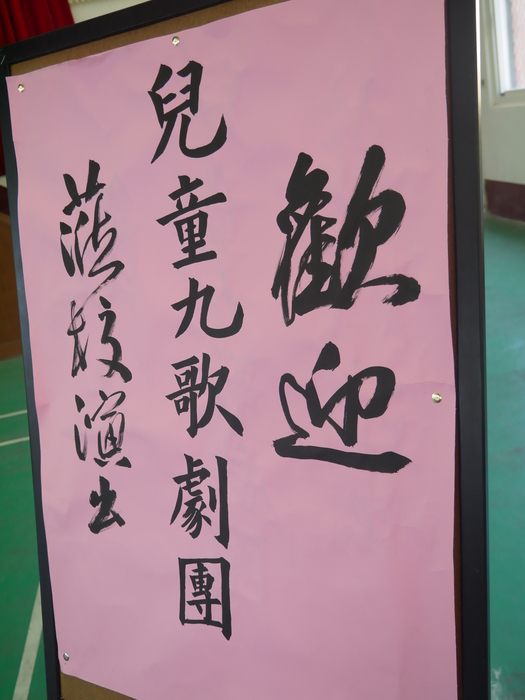 歡迎
兒童九歌劇團
蒞校演出